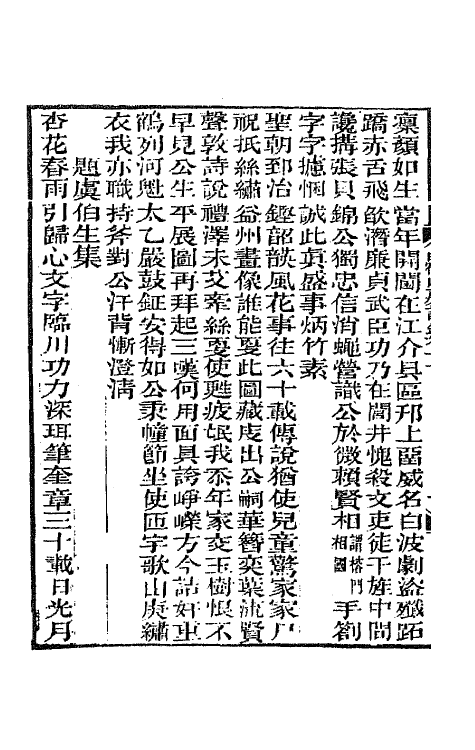 凜顏如生當年開閫在江介具區邗上畱威名白波劇盜殲跖
蹻赤舌飛歘濟廉貞武臣功乃在閭井愧殺文吏徒干旌中間
讒搆張貝錦公獨忠信消蠅營識公於微賴賢相謂榕門相國手劄
字字攄悃誠此眞盛事炳竹素
聖朝郅治鏗韶韺風花事往六十載傳說猶使兒童驚家家尸
祝抵絲繡益州畫像誰能夏此圖藏庋出公嗣華簪奕葉流賢
聲敦詩說禮澤未艾牽絲夏使甦疲氓我忝年家交玉樹恨不
早見公生平展圖再拜起三嘆何用面具誇崢嶸方今詰奸重
鶡列河魁太乙嚴鼓鉦安得如公秉幢節坐使匝宇歌山庚繡
衣我亦職持斧對公汗背慚澄淸
題虞伯生集
杏花春雨引歸心文字臨川功力深珥筆奎章三十載日光月